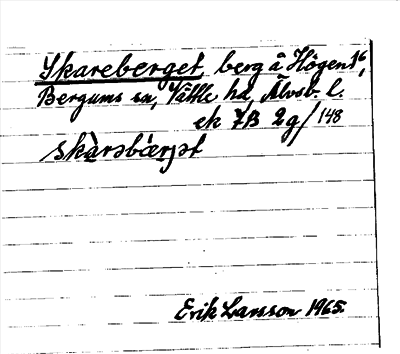 Skareberget, berg å Högen 1⁶,
Bergums sn, Vättle hd, Älvsb. l.
ek 7B 2g/148
skàrəbærjət
Erik Larsson 1965.